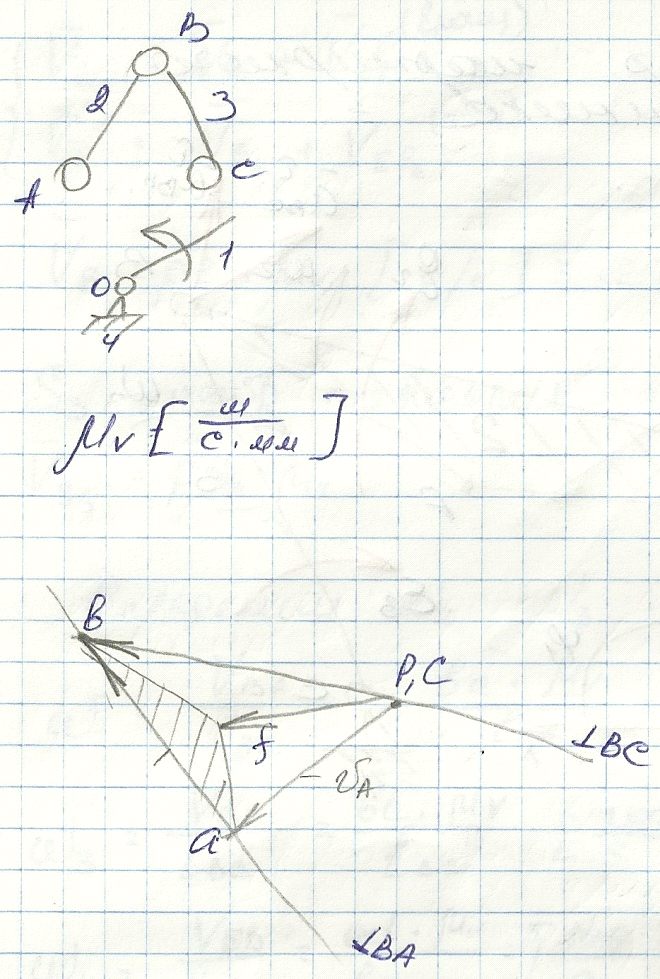 B
2 3
A C
1
O
4
μv [м/с·мм]
B
P, C
f
⊥BC
v̄A
a
⊥BA